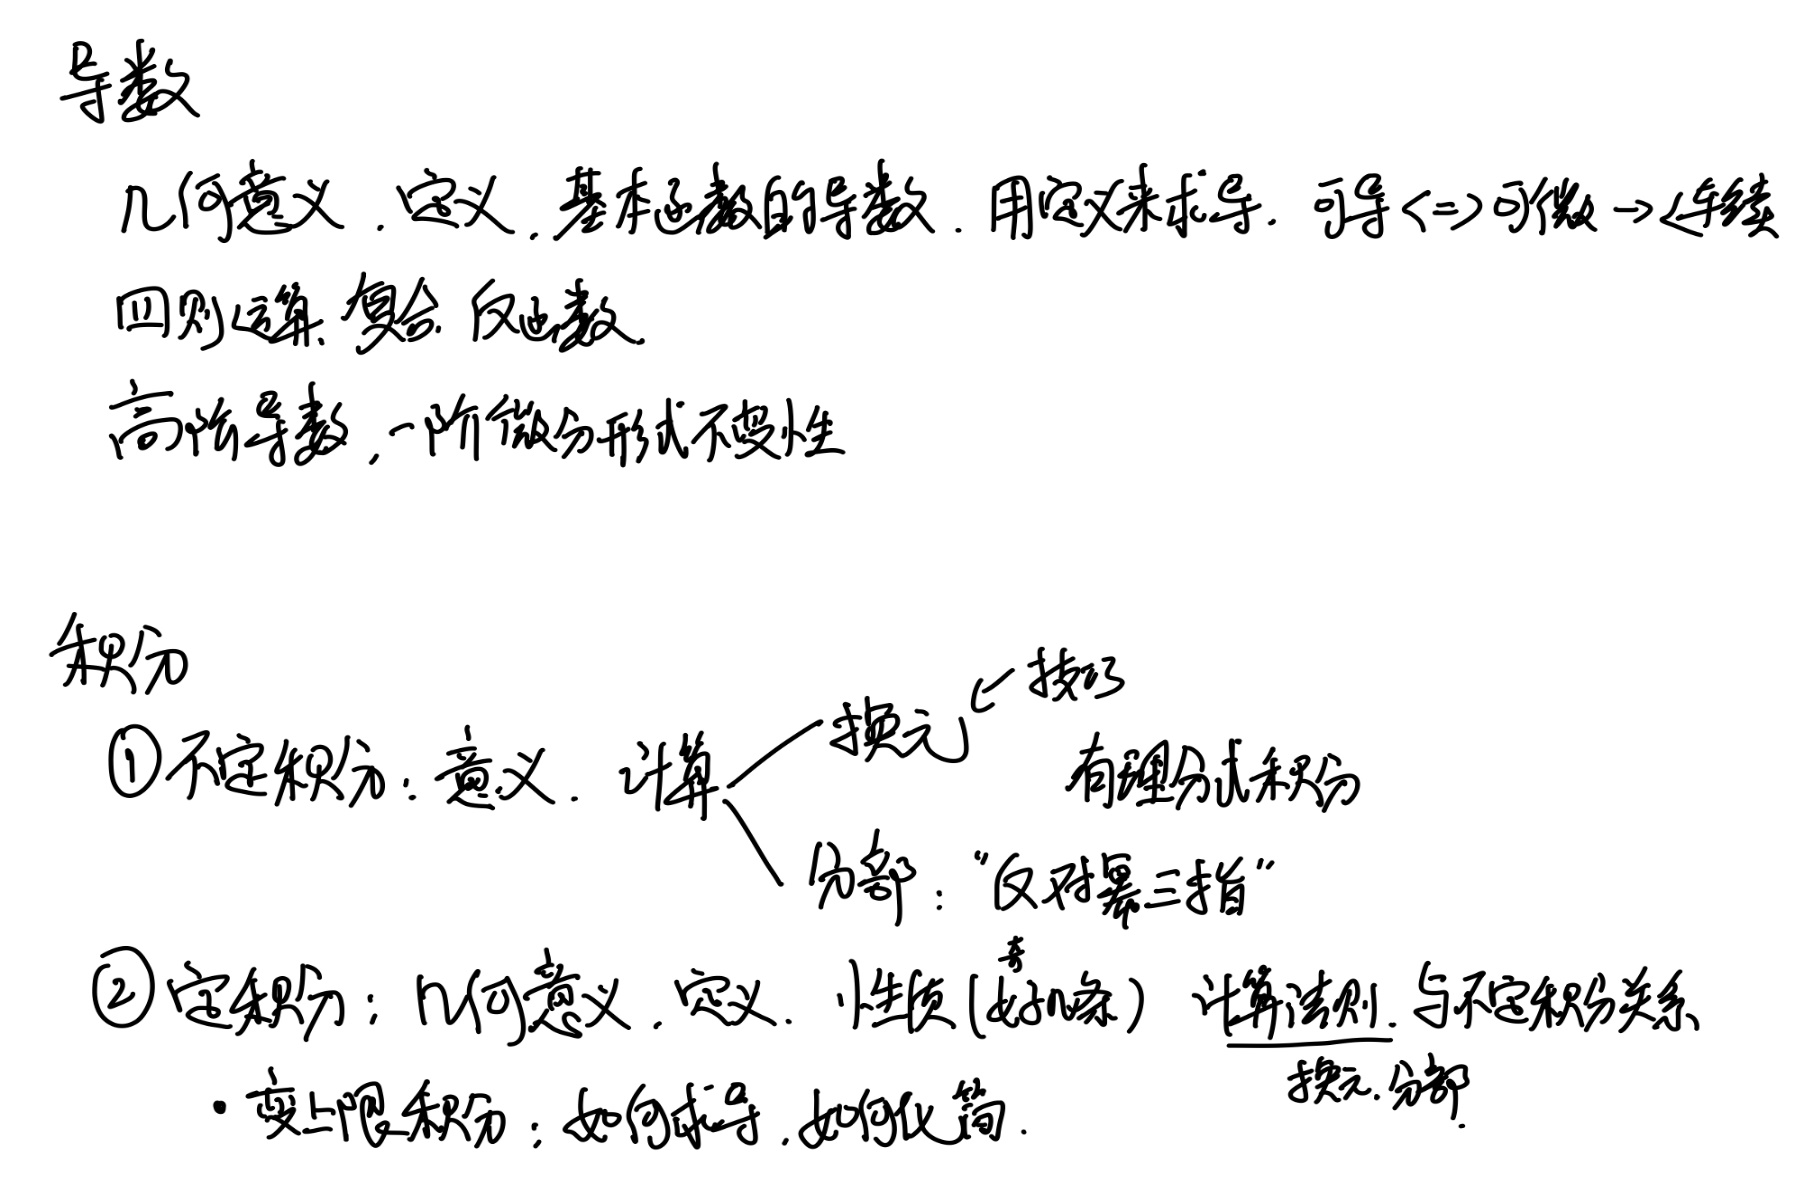 导数
几何意义、定义、基本函数的导数. 用定义来求导. 可导<=>可微→连续
四则运算、复合、反函数.
高阶导数,一阶微分形式不变性
积分
技巧
①不定积分:意义. 计算 换元
有理分式积分
分部:“反对幂三指”
②定积分:几何意义、定义. 性质(好几条) 计算法则、与不定积分关系
换元.分部.
·变上限积分:如何求导,如何化简.